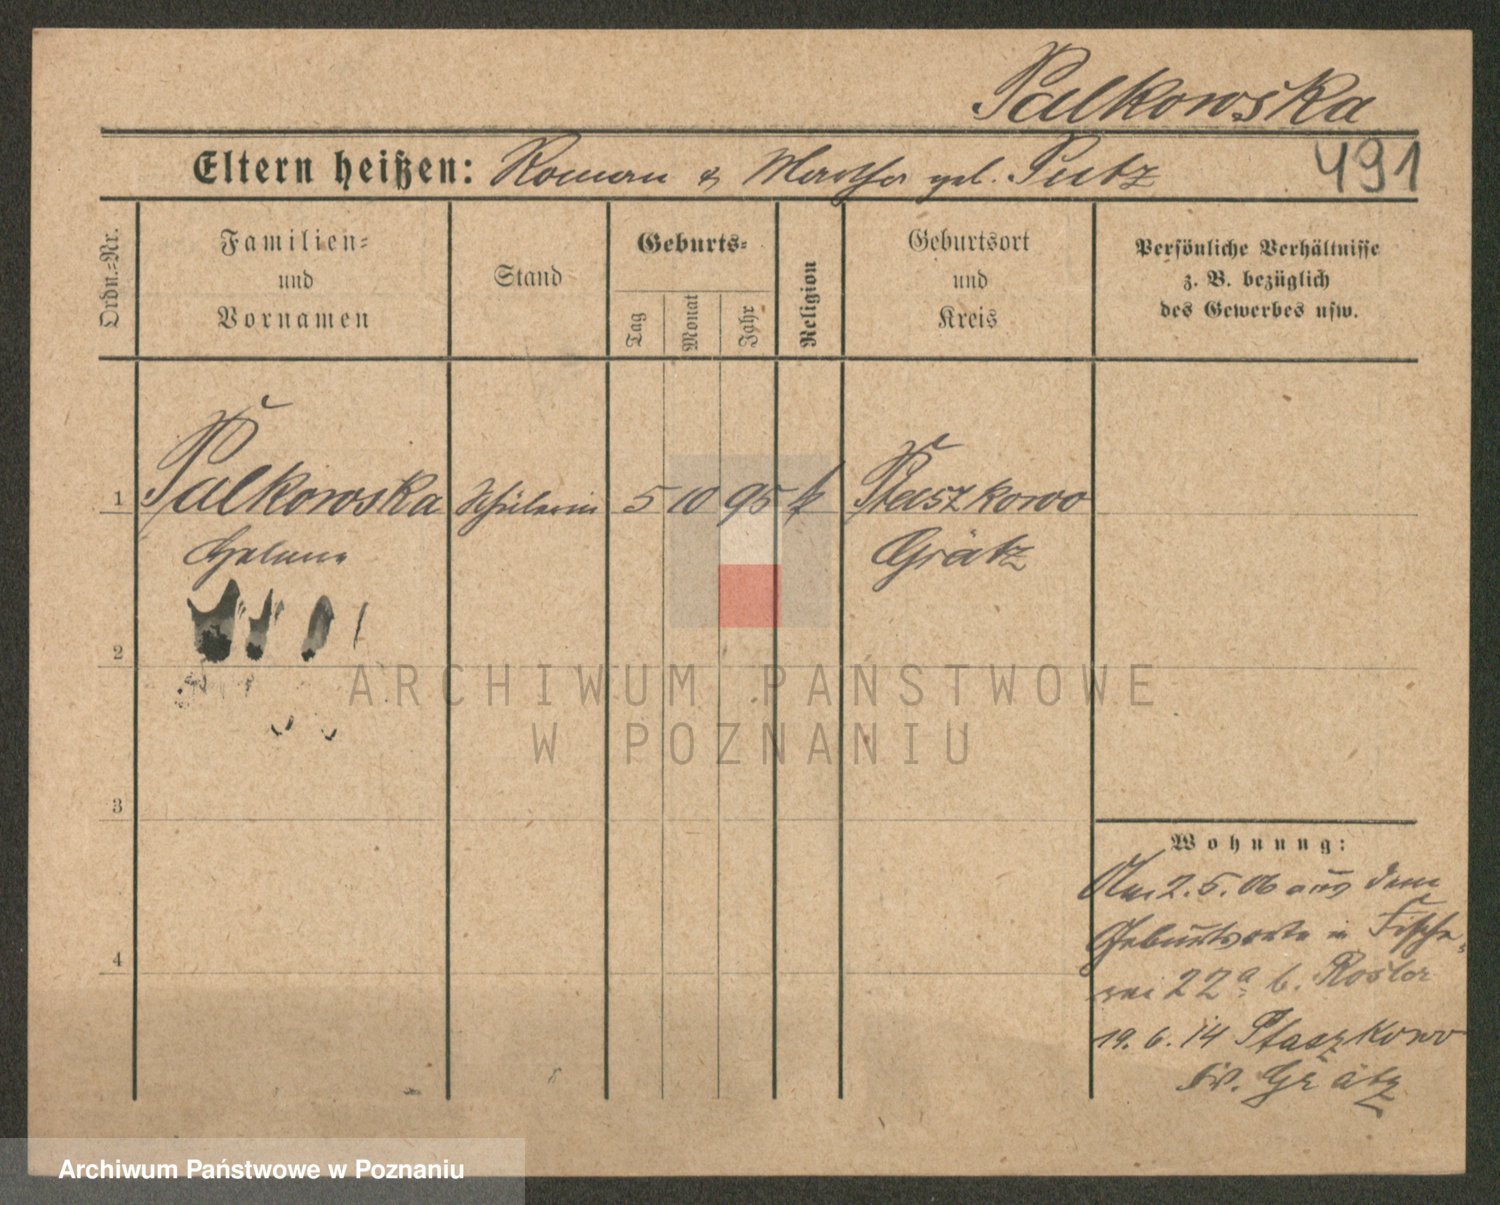 Palkowska
Eltern heißen: Roman & Martha geb. Putz
491
Ordn.-Nr.
Familien- und Vornamen
Stand
Geburts-
Tag
Monat
Jahr
Religion
Geburtsort und Kreis
Persönliche Verhältnisse
z. B. bezüglich
des Gewerbes usw.
1 Palkowska Schülerin 5 10 95 k Ptaszkowo
Helene Grätz
2
ARCHIWUM PAŃSTWOWE
W POZNANIU
3
Wohnung:
Am 2. 5. 06 aus dem
Geburtsorte n Fische-
rei 22a b. Rosler
4
19. 6. 14 Ptaszkowo
Kr. Grätz
Archiwum Państwowe w Poznaniu